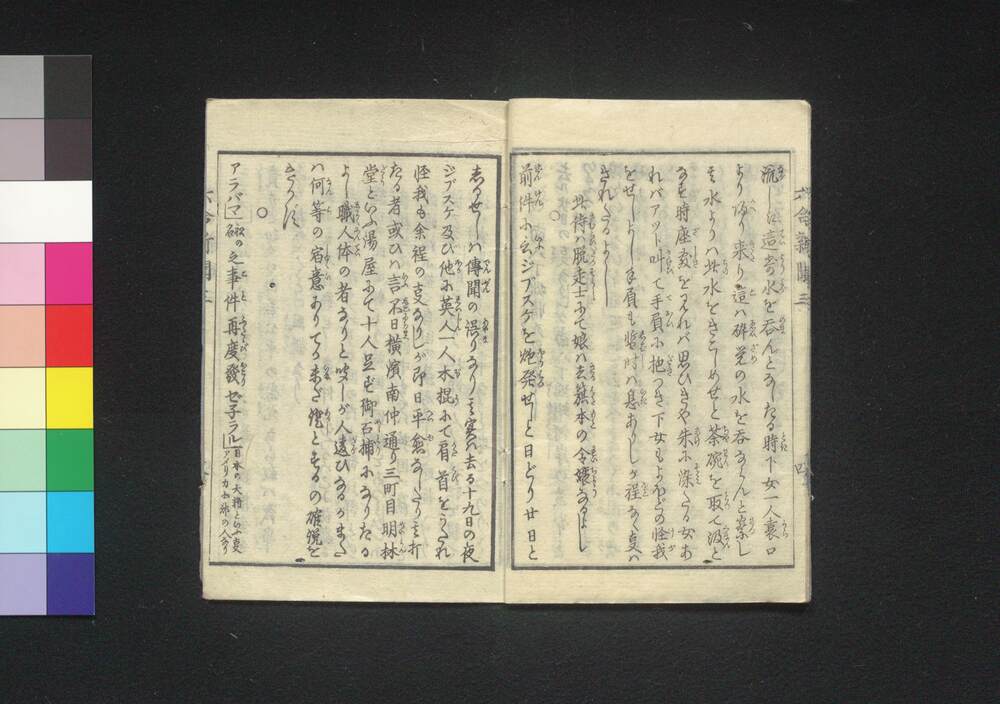 流し這常の水を呑んとなしたる時下女一人裏口
より帰り来り這ハ碎覚の水を呑ならんと察し
其水よりハ此水をきこしめせと茶碗を取て汲と
なす時座敷を見れバ思ひきや朱に染たる女あ
れバアツト叫て手負に抱つき下女もよほどの怪我
をせしよし手負も暫時ハ息ありしが程なく事ハ
きれたるよし
此侍ハ脱走士にて娘ハ去籏本の令嬢なるよし
○
前件に云ジブスケを炮発せしと日どり廿日と
志るせしハ傳聞の誤りなり其実ハ去る十九日の夜
ジブスケ及び他に英人一人木棍にて肩首をうたれ
怪我も余程の事なりしが即日平愈なしたり其打
たる者或ひハ言不日横濱南仲通り三町目明林
堂といふ湯屋にて十人足ず御召捕になりたる
よし職人体の者なりと喚しが人違ひなるかまた
ハ何等の宿意ありてか未だ碇とするの確説を
きかず
○
アラバマ一砲の之事件再度發セ子ラル日本の大将といふ事
アメリカ出張の人なり
六合新聞 三